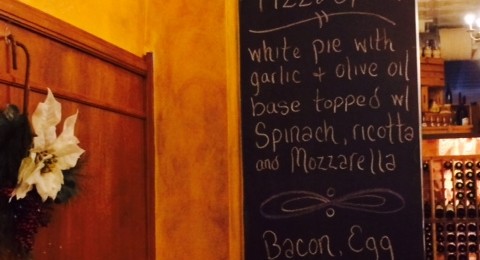 white pie with
garlic + olive oil
base topped w/
Spinach, ricotta
and Mozzarella
Bacon, Egg